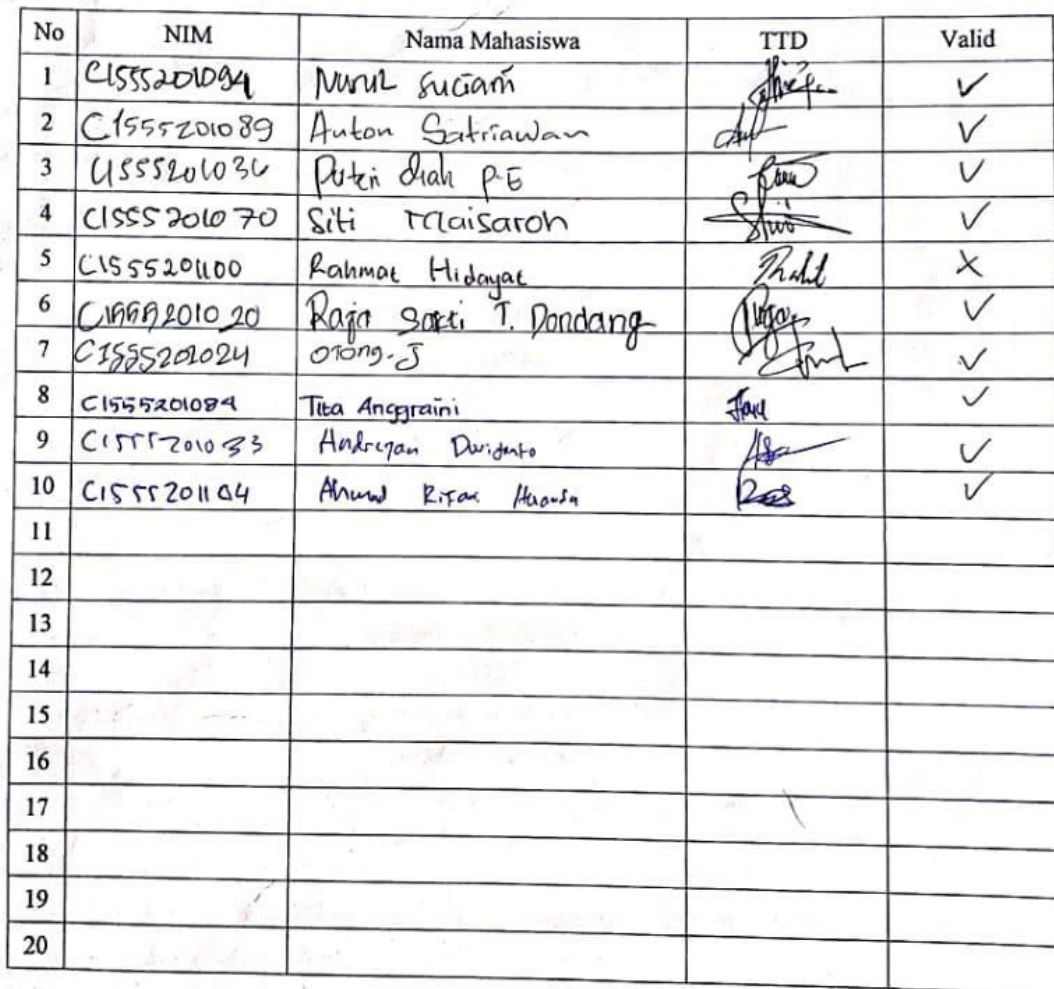 No NIM Nama Mahasiswa TTD Valid
1 C1555201094 Nurul Suciani ✓
2 C1555201089 Anton Satriawan ✓
3 C1555201036 Putri diah P.E ✓
4 C1555201070 Siti Maisaroh ✓
5 C1555201100 Rahmat Hidayat X
6 C1555201020 Raja Sakti T. Dondang ✓
7 C1555201024 Otong.J ✓
8 C1555201084 Tita Anggraini ✓
9 C1555201033 ✓
10 C1555201104 Ahmad ✓
11
12
13
14
15
16
17
18
19
20